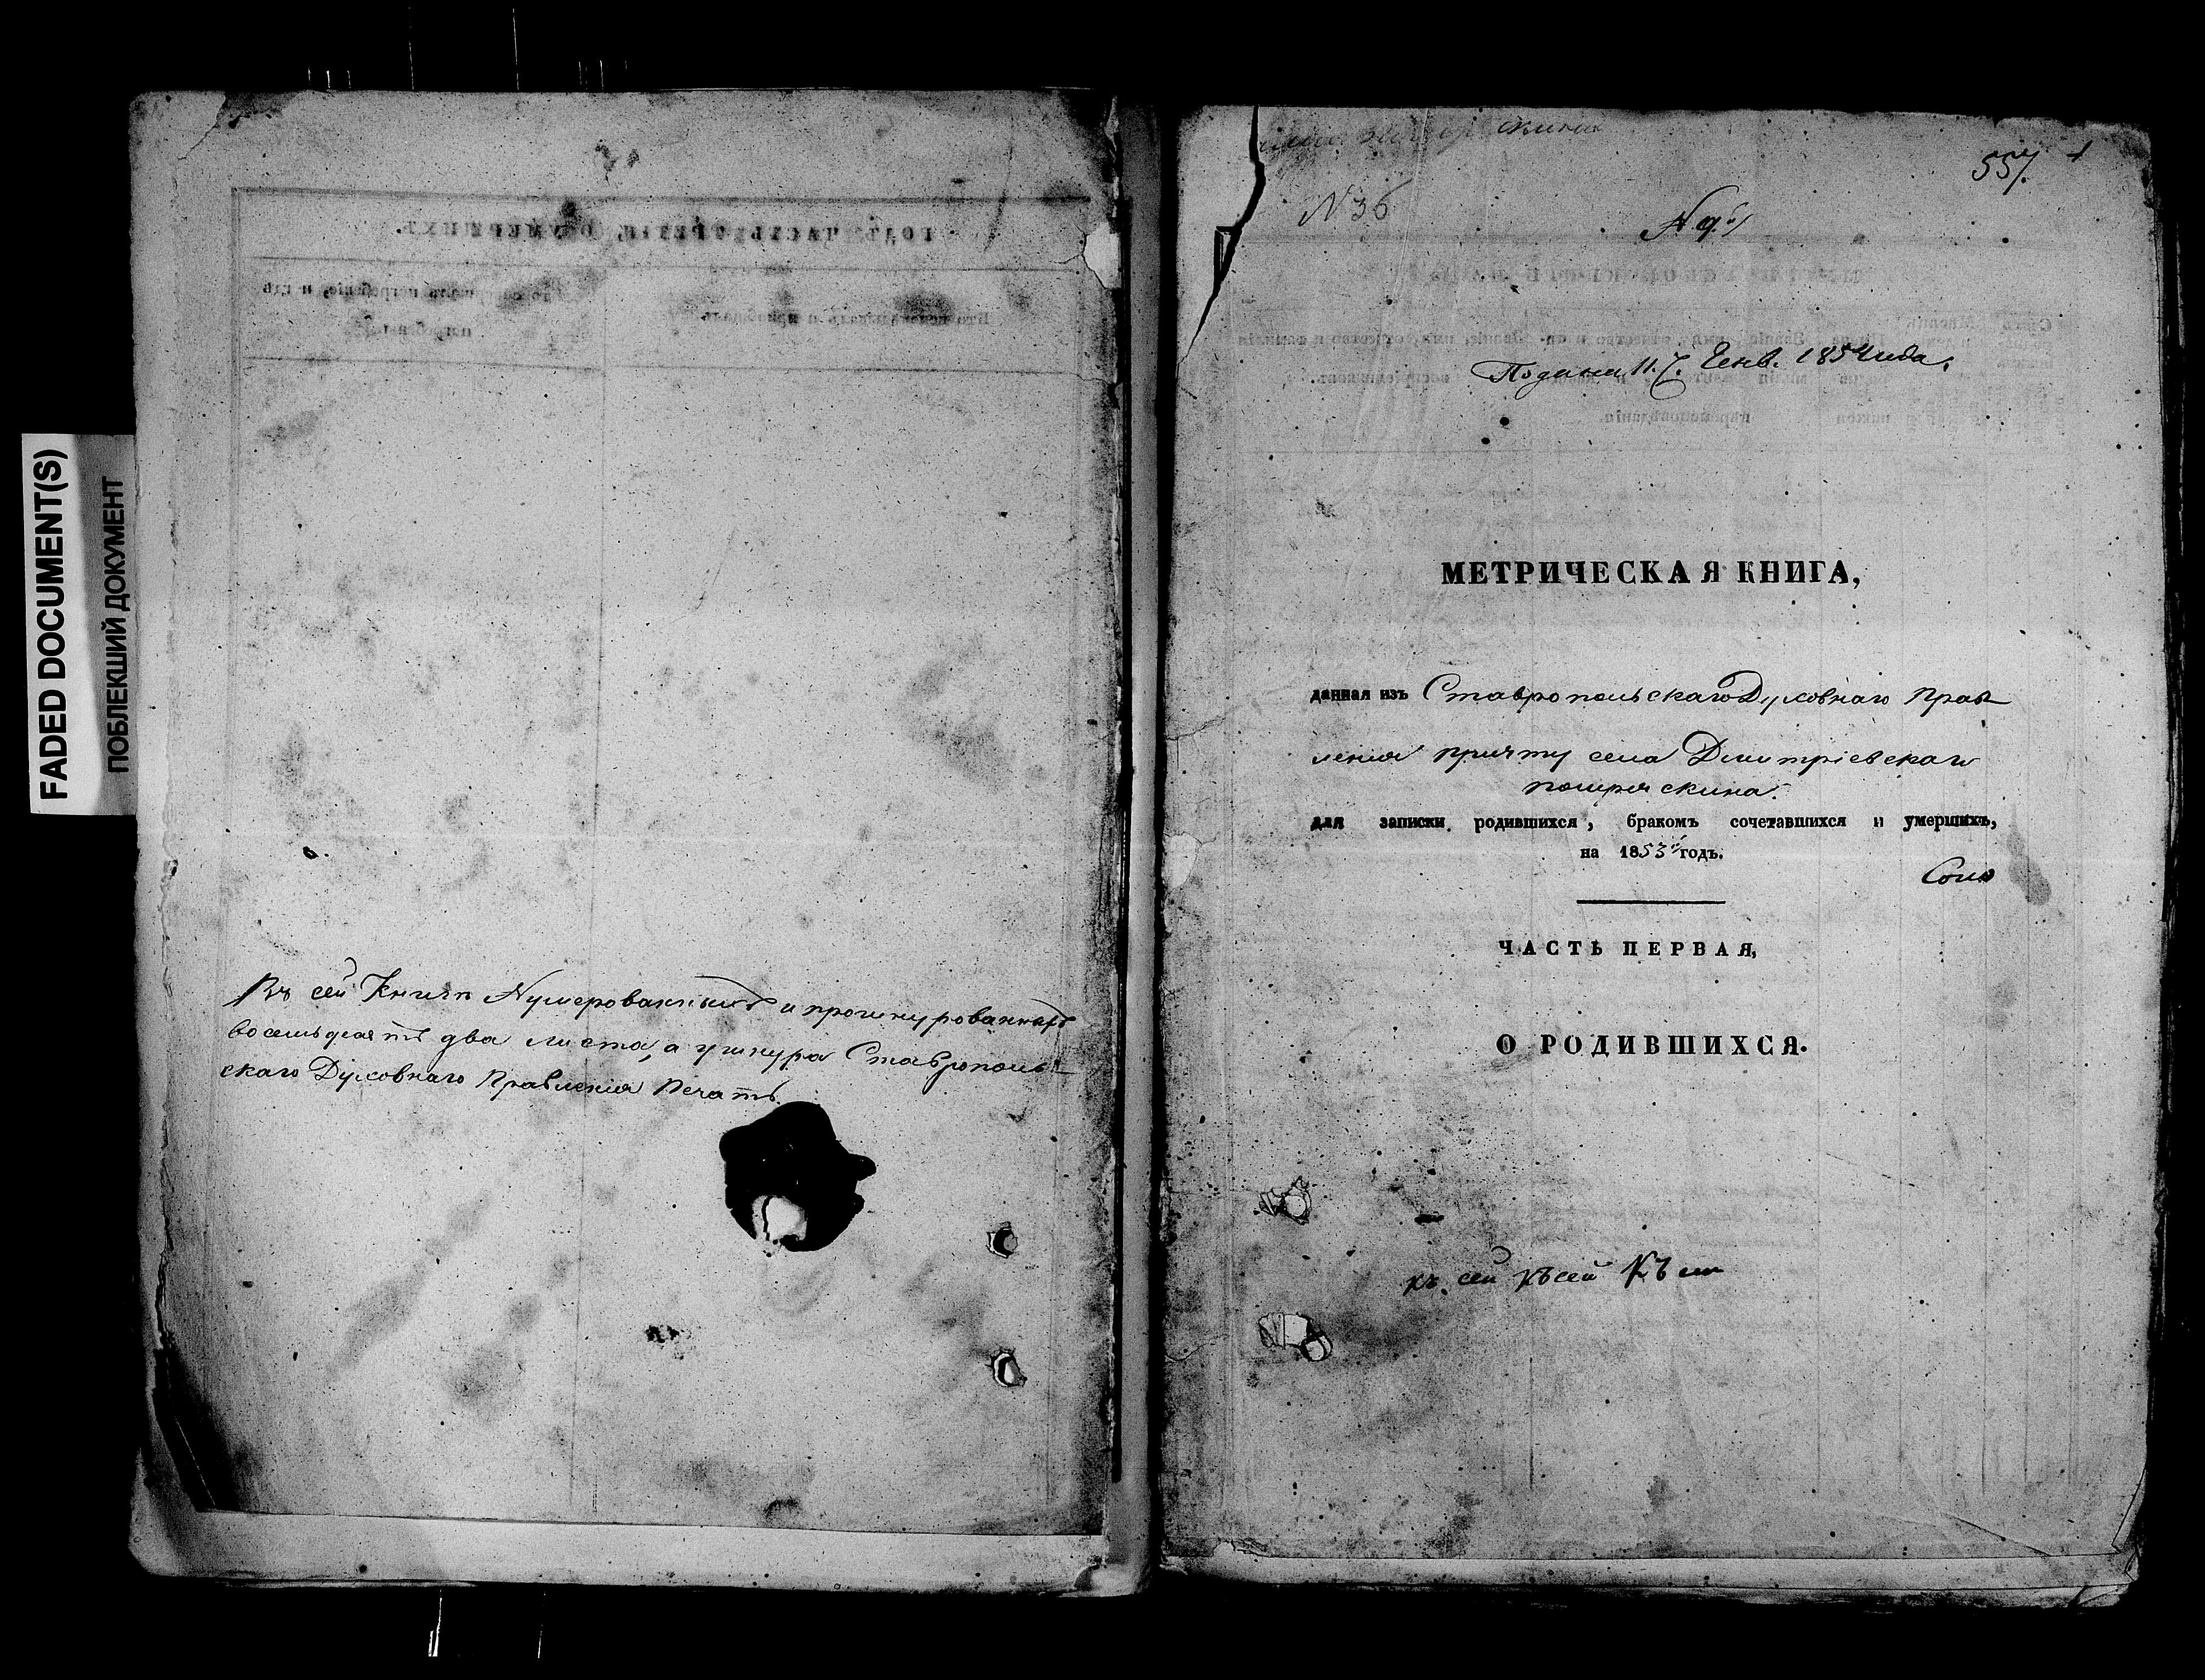 FADED DOCUMENT(S)
ПОБЛЕКШИЙ ДОКУМЕНТ
Въ сей Книгѣ Нумерованныхъ и прошнурованныхъ
восемьдесятъ два листа, а у шнура Ставрополь-
скаго Духовнаго Правленія Печать.
557.
N 36
N 9й
Подана 11. Генв. 1854 года.
МЕТРИЧЕСКАЯ КНИГА,
данная изъ Ставропольскаго Духовнаго Прав-
ленія причту села Дмитріевскаго
для записки родившихся, бракомъ сочетавшихся и умершихъ,
на 1853й годъ.
ЧАСТЬ ПЕРВАЯ,
О РОДИВШИХСЯ.
къ сей къ сей Къ